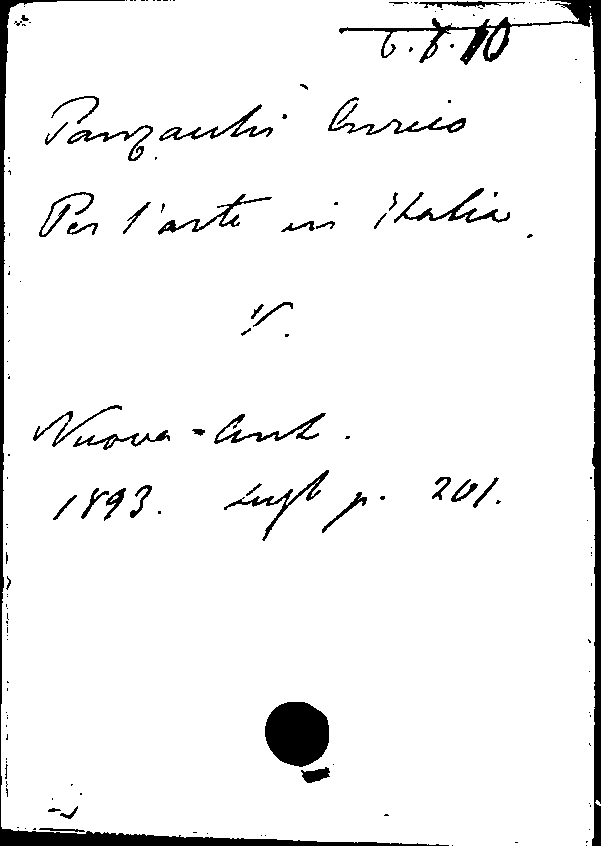 6.8.10
Panzacchi Enrico
Per l'arte in Italia.
V.
Nuova-Ant.
1893. Lugl p. 201.